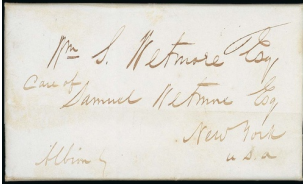 Wm S. Wetmore Esq
Care of
Samuel Wetmore Esq
New York
U.S.A
Albion